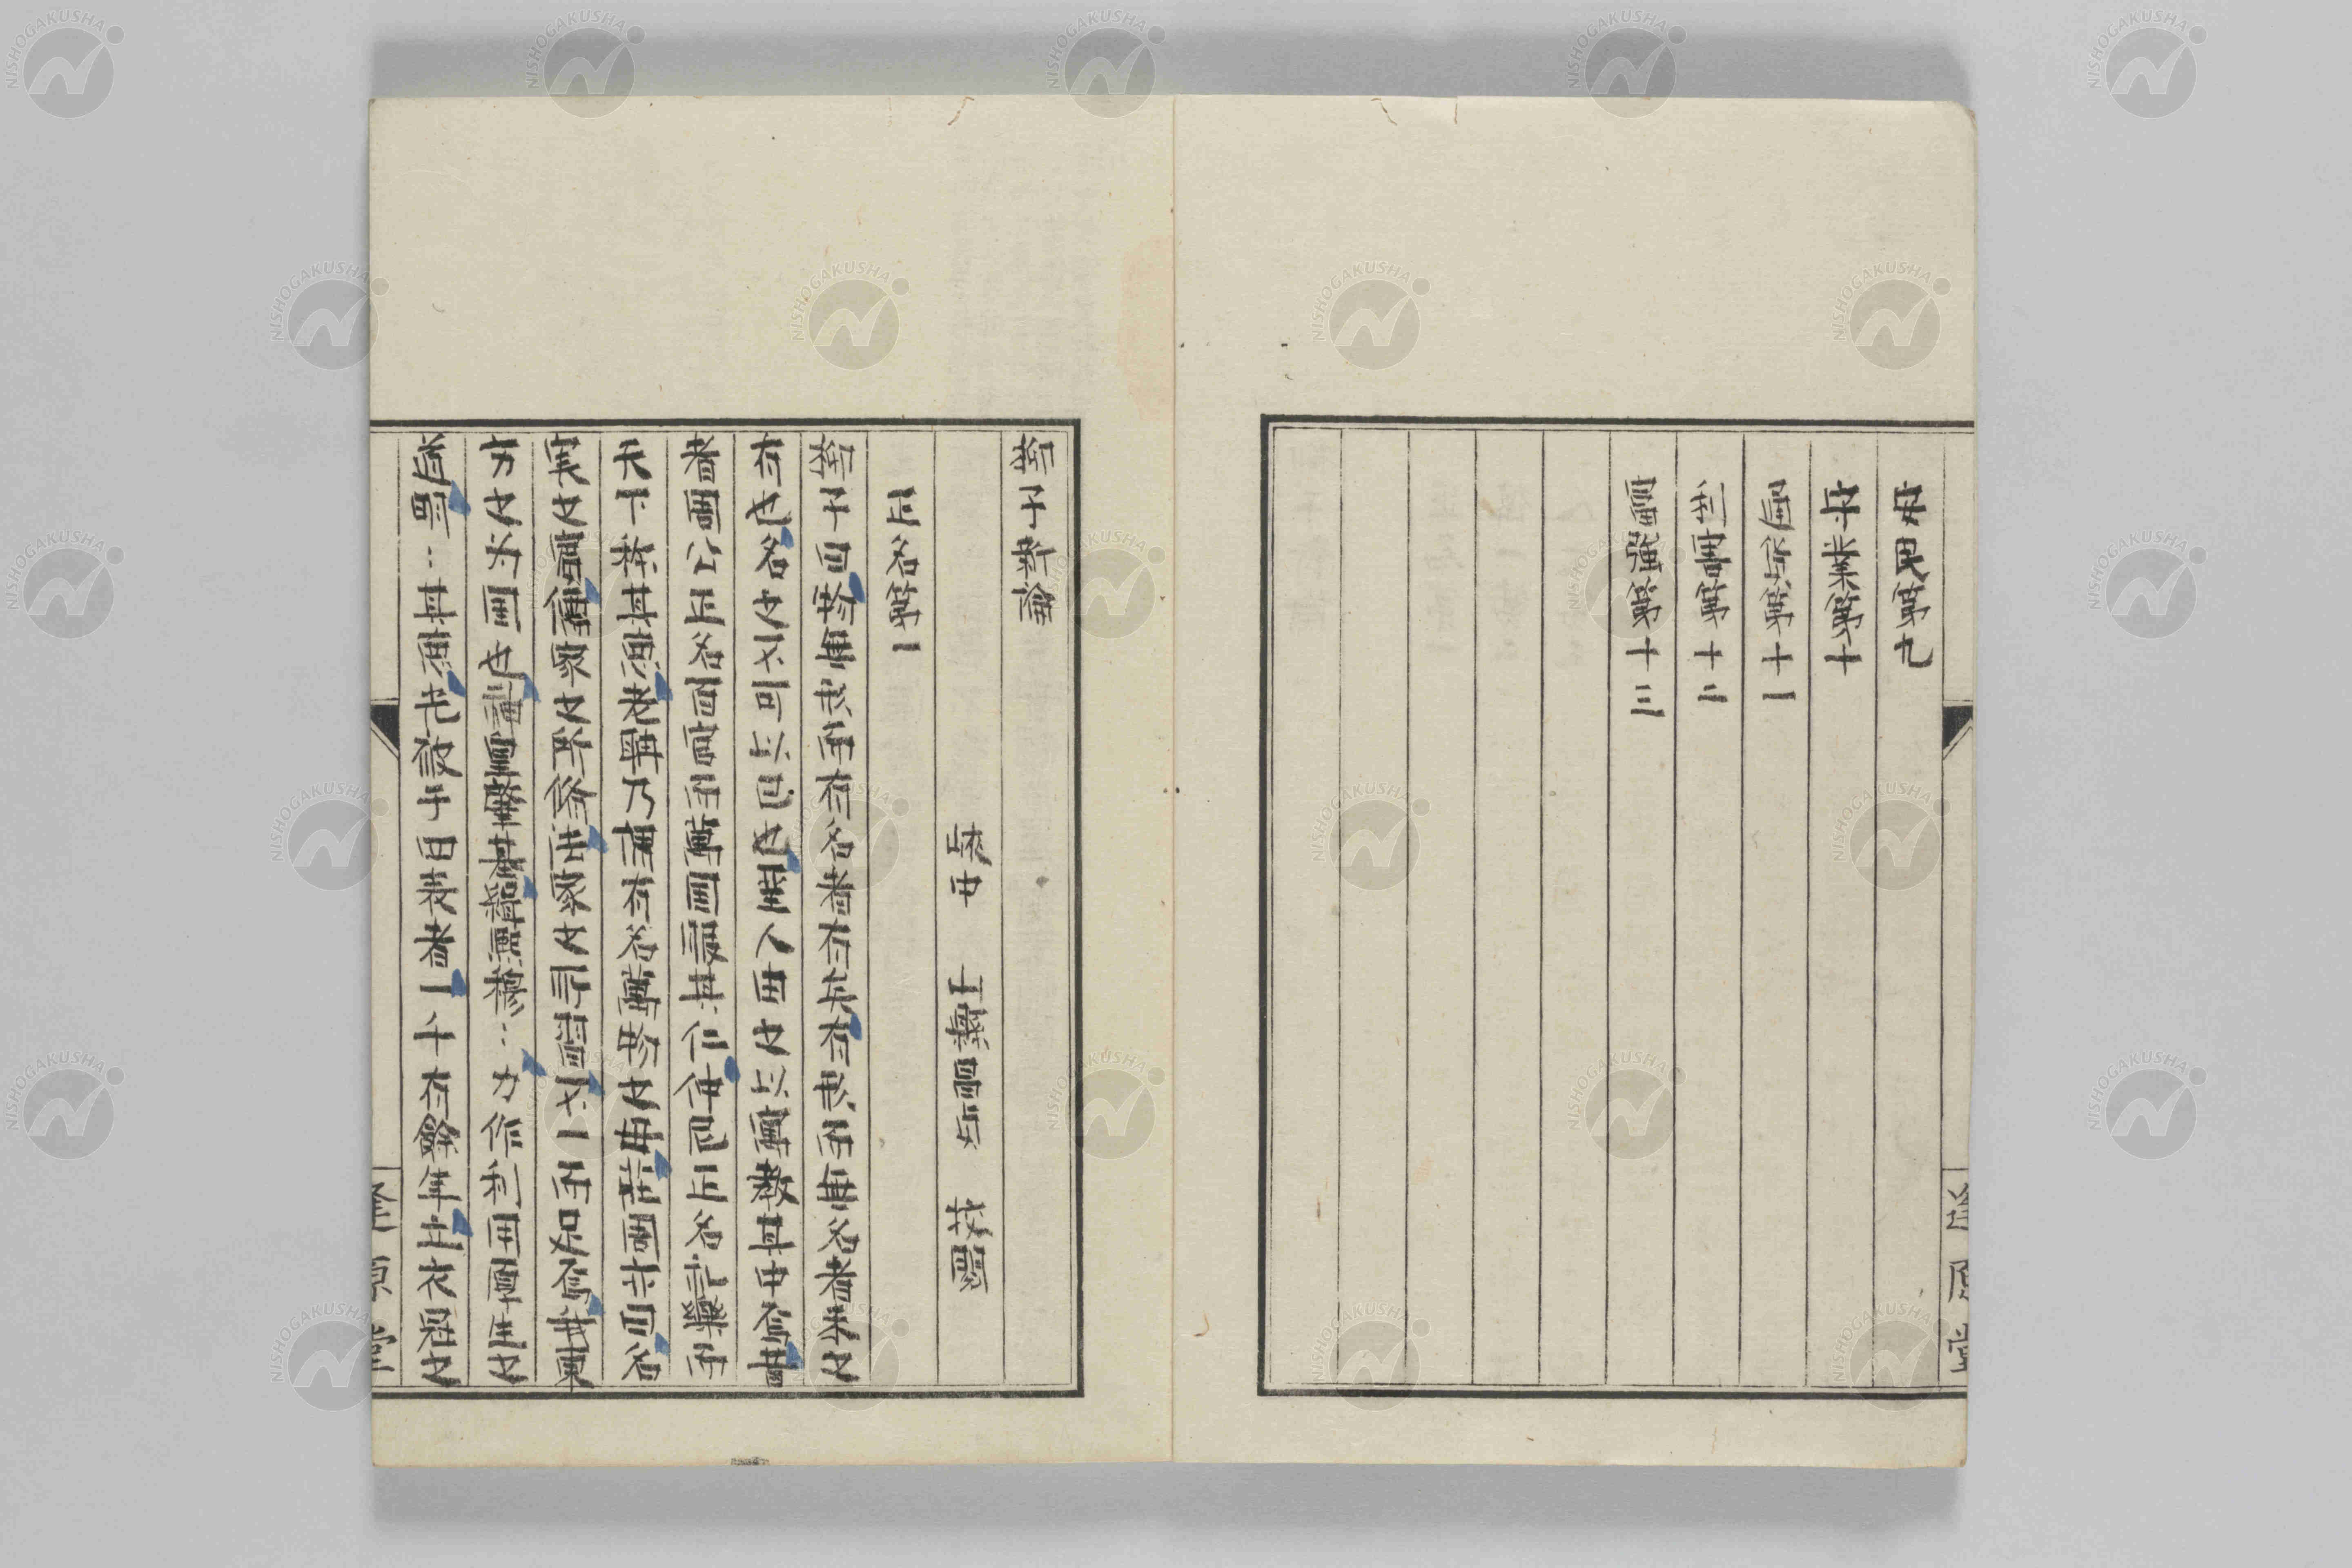 安民第九
守業第十
通貨第十一
利害第十二
富強第十三
逢原堂
柳子新論
峽中　山縣昌貞　校閱
正名第一
柳子曰物無形而有名者有矣有形而無名者未之
有也名之不可以已也聖人由之以寓教其中焉昔
者周公正名百官而萬國服其仁仲尼正名禮樂而
天下稱其德老聃乃謂有名萬物之母莊周亦曰名
實之賓儒家之所修法家之所習不一而足焉我東
方之為國也神皇肇基緝熙穆〻力作利用厚生之
道明〻其德光被于四表者一千有餘年立衣冠之
逢原堂